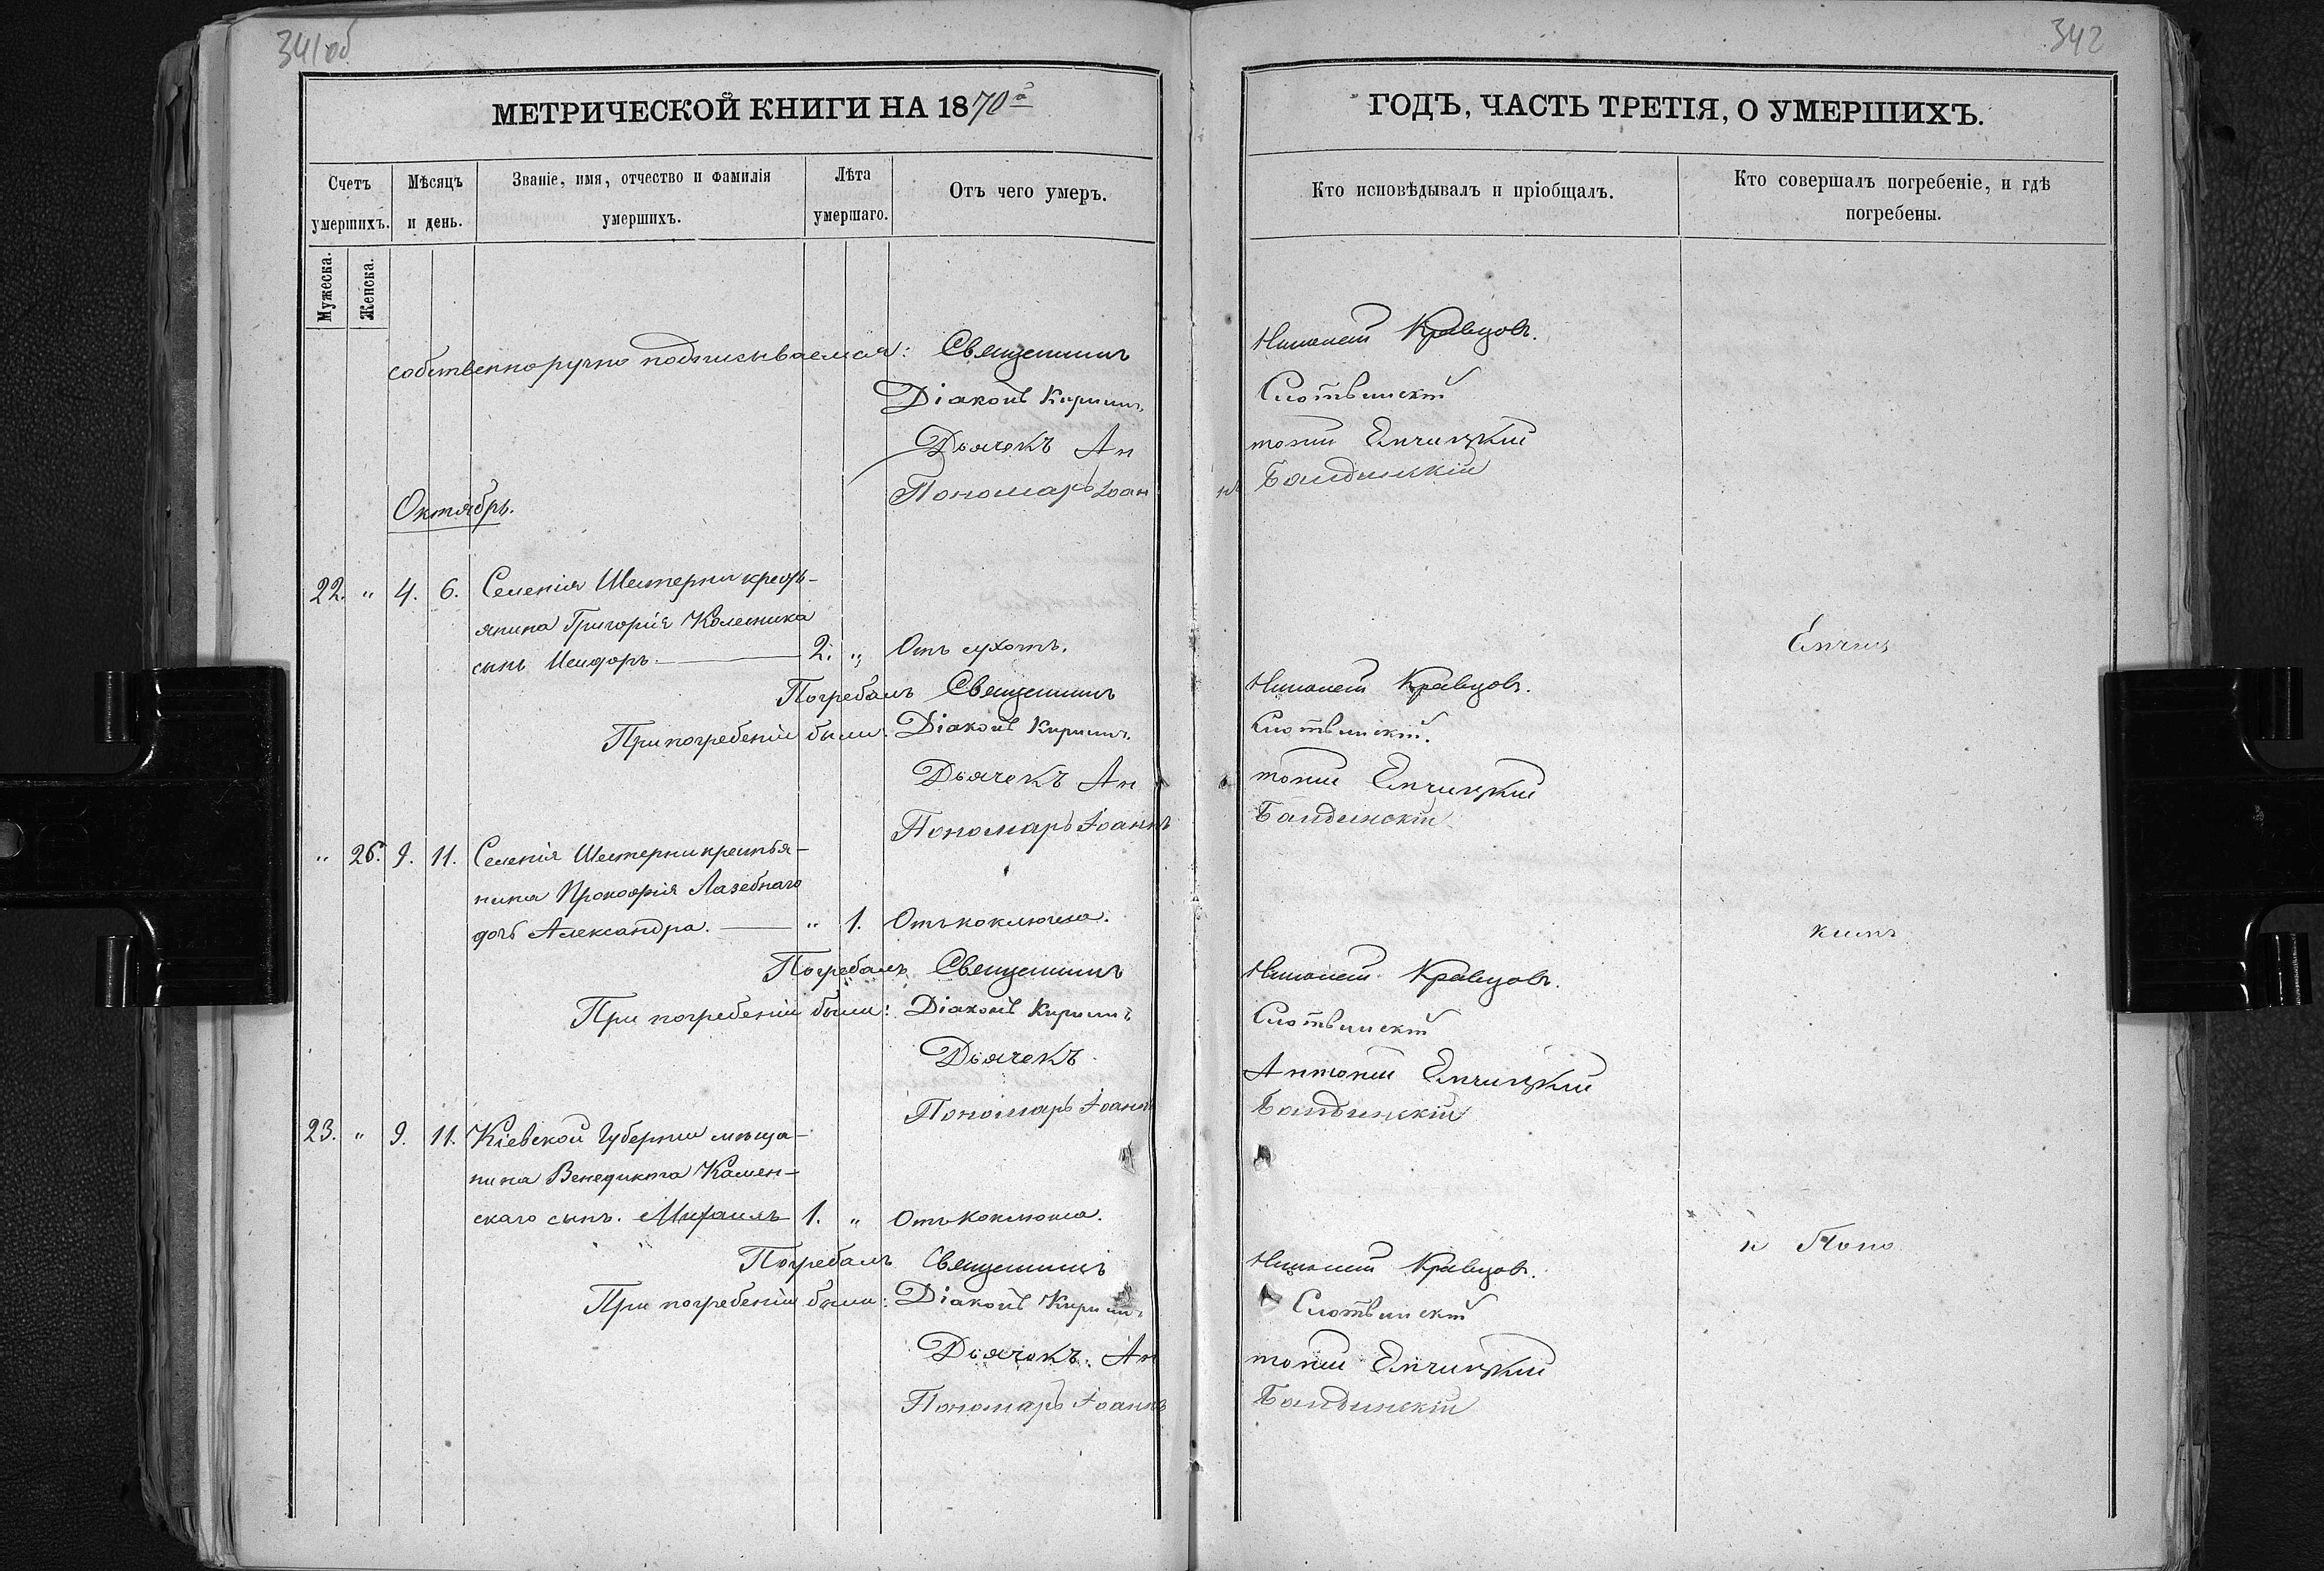 341об
342
МЕТРИЧЕСКОЙ КНИГИ НА 1870й
ГОДЪ, ЧАСТЬ ТРЕТІЯ, О УМЕРШИХЪ.
Счетъ умершихъ.
Мѣсяцъ и день.
Званіе, имя, отчество и фамилія умершихъ.
Лѣта умершаго.
Отъ чего умеръ.
Кто исповѣдывалъ и пріобщалъ.
Кто совершалъ погребеніе, и гдѣ погребены.
Мужеска.
Женска.
собственноручно подписываемся: Священникъ Кравцовъ.
Діаконъ Кириллъ Слотвинскій
Дьячекъ Антоній Епчицкій
Пономарь Іоаннъ Бандинскій
Октябрь.
22. " 4. 6. Селенія Шестерни кресть-
янина Григорія Колесника
сынъ Исидоръ. 2. " Отъ сухотъ.
Епчиц
Погребалъ Священникъ Кравцовъ.
При погребеніи были: Діаконъ Кириллъ Слотвинскій.
Дьячекъ Антоній Епчицкій
Пономарь Іоаннъ Бандинскій
" 26. 9. 11. Селенія Шестерни крестья-
нина Прокофія Лазебнаго
дочь Александра. " 1. Отъ коклюша.
кингъ
Погребалъ Священникъ Кравцовъ.
При погребеніи были: Діаконъ Кириллъ Слотвинскій
Дьячекъ Антоній Епчицкій
Пономарь Іоаннъ Бандинскій
23. " 9. 11. Кіевской Губерніи мѣща-
нина Венедикта Камен-
скаго сынъ. Михаилъ 1. " Отъ коклюша.
и Поно
Погребалъ Священникъ Кравцовъ.
При погребеніи были: Діаконъ Кириллъ Слотвинскій
Дьячекъ. Антоній Епчицкій
Пономарь Іоаннъ Бандинскій